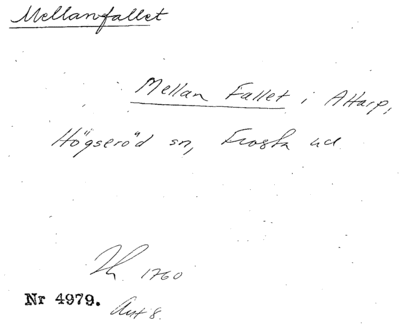 Mellanfallet
Mellan Fallet i Attarp,
Högseröd sn, Frosta hd
1760
Nr 4979.
Avt 8.